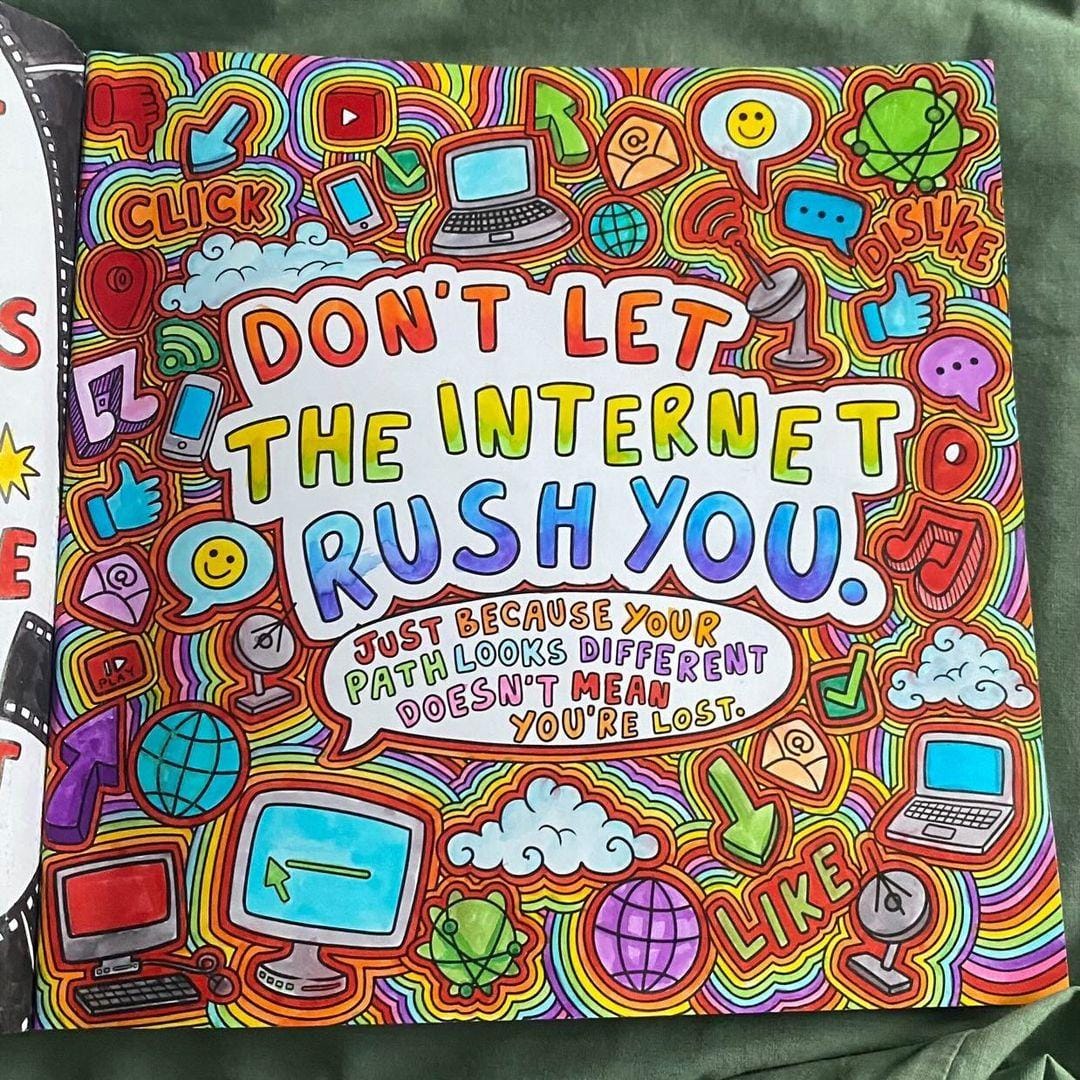 CLICK
@
DISLIKE
DON'T LET
THE INTERNET
RUSH YOU.
@
JUST BECAUSE YOUR
PATH LOOKS DIFFERENT
DOESN'T MEAN
YOU'RE LOST.
PLAY
@
LIKE
S
E
T